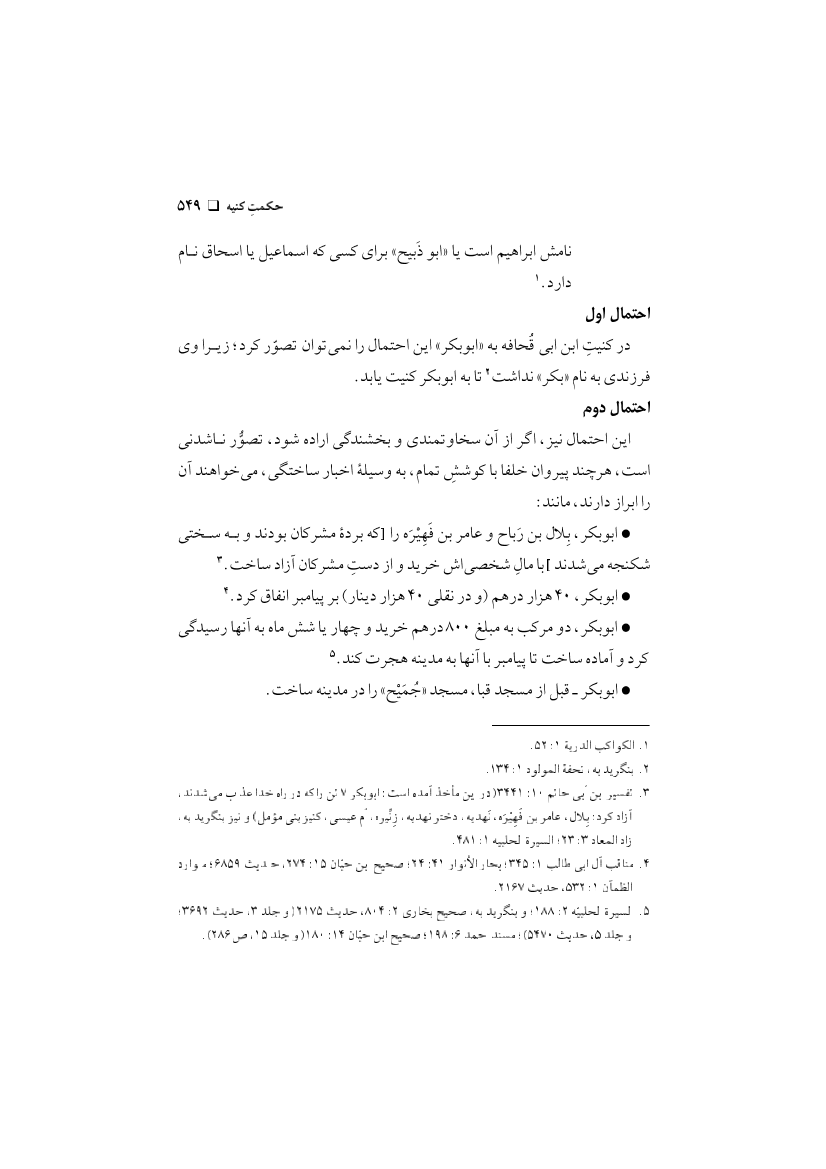 حکمتِ کنیه ❑ ۵۴۹
نامش ابراهیم است یا «ابو ذَبیح» برای کسی که اسماعیل یا اسحاق نـام
دارد.۱
احتمال اول
در کنیتِ ابن ابی قُحافه به «ابوبکر» این احتمال را نمی‌توان تصوّر کرد؛ زیـرا وی
فرزندی به نام «بکر» نداشت۲ تا به ابوبکر کنیت یابد.
احتمال دوم
این احتمال نیز، اگر از آن سخاوتمندی و بخشندگی اراده شود، تصوُّر نـاشدنی
است، هرچند پیروان خلفا با کوششِ تمام، به وسیلهٔ اخبار ساختگی، می‌خواهند آن
را ابراز دارند، مانند:
● ابوبکر، بِلال بن رَباح و عامر بن فَهِیْرَه را [که بردهٔ مشرکان بودند و بـه سـختی
شکنجه می‌شدند ] با مالِ شخصی‌اش خرید و از دستِ مشرکان آزاد ساخت.۳
● ابوبکر، ۴۰ هزار درهم (و در نقلی ۴۰ هزار دینار) بر پیامبر انفاق کرد.۴
● ابوبکر، دو مرکب به مبلغ ۸۰۰ درهم خرید و چهار یا شش ماه به آنها رسیدگی
کرد و آماده ساخت تا پیامبر با آنها به مدینه هجرت کند.۵
● ابوبکر ـ قبل از مسجد قبا، مسجد «جُمَیْح» را در مدینه ساخت.
۱. الکواکب الدریة ۱: ۵۲.
۲. بنگرید به، تحفة المولود ۱: ۱۳۴.
۳. تفسیر ابن أبی حاتم ۱۰: ۳۴۴۱ (در این مأخذ آمده است: ابوبکر ۷ تن را که در راه خدا عذاب می‌شدند،
آزاد کرد: بِلال، عامر بن فَهِیْرَه، نَهدیه، دختر نهدیه، زِنِّیره، اُم عیسی، کنیز بنی مؤمل) و نیز بنگرید به،
زاد المعاد ۳: ۲۳؛ السیرة الحلبیه ۱: ۴۸۱.
۴. مناقب آل ابی طالب ۱: ۳۴۵؛ بحار الأنوار ۴۱: ۲۴؛ صحیح ابن حبّان ۱۵: ۲۷۴، حدیث ۶۸۵۹؛ موارد
الظمآن ۱: ۵۳۲، حدیث ۲۱۶۷.
۵. السیرة الحلبیّه ۲: ۱۸۸؛ و بنگرید به، صحیح بخاری ۲: ۸۰۴، حدیث ۲۱۷۵ (و جلد ۳، حدیث ۳۶۹۲؛
و جلد ۵، حدیث ۵۴۷۰)؛ مسند احمد ۶: ۱۹۸؛ صحیح ابن حبّان ۱۴: ۱۸۰ (و جلد ۱۵، ص ۲۸۶).